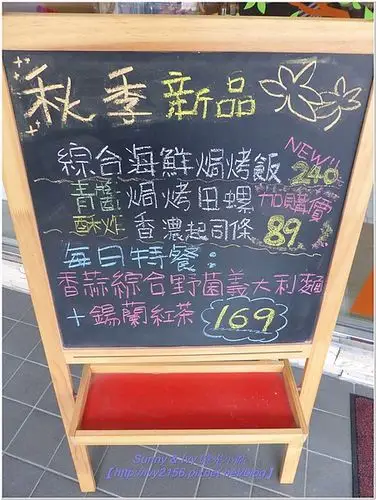 秋季新品
綜合海鮮焗烤飯 NEW!! 240
青醬焗烤田螺 加購價
酥炸香濃起司條 89
每日特餐：
香蒜綜合野菌義大利麵
+錫蘭紅茶 169
Sunny & Ivy